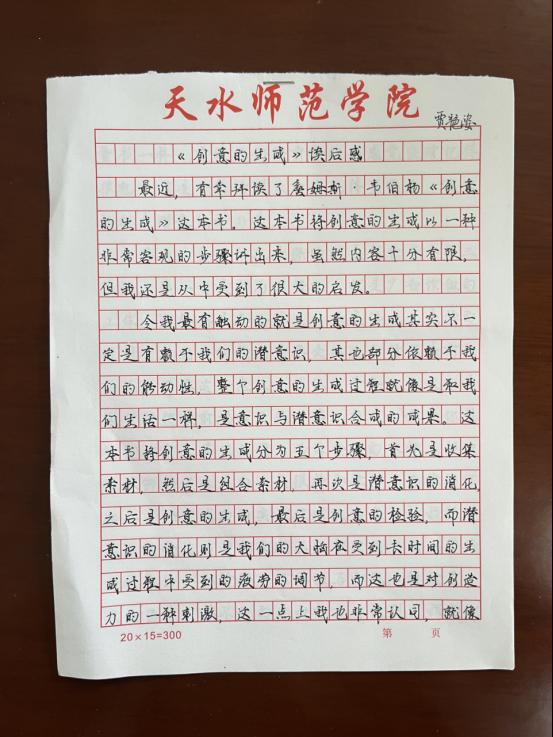 天水师范学院
贾艳姿
《创意的生成》读后感
最近，有幸拜读了詹姆斯·韦伯杨《创意
的生成》这本书。这本书将创意的生成以一种
非常客观的步骤诉出来，虽然内容十分有限，
但我还是从中受到了很大的启发。
令我最有触动的就是创意的生成其实不一
定是有赖于我们的潜意识，其也部分依赖于我
们的能动性，整个创意的生成过程就像是取我
们生活一样，是意识与潜意识合成的成果。这
本书将创意的生成分为五个步骤，首先是收集
素材，然后是组合素材，再次是潜意识的消化，
之后是创意的生成，最后是创意的检验，而潜
意识的消化则是我们的大脑在受到长时间的生
成过程中受到的疲劳的调节，而这也是对创造
力的一种刺激，这一点上我也非常认同，就像
20×15=300
第 页